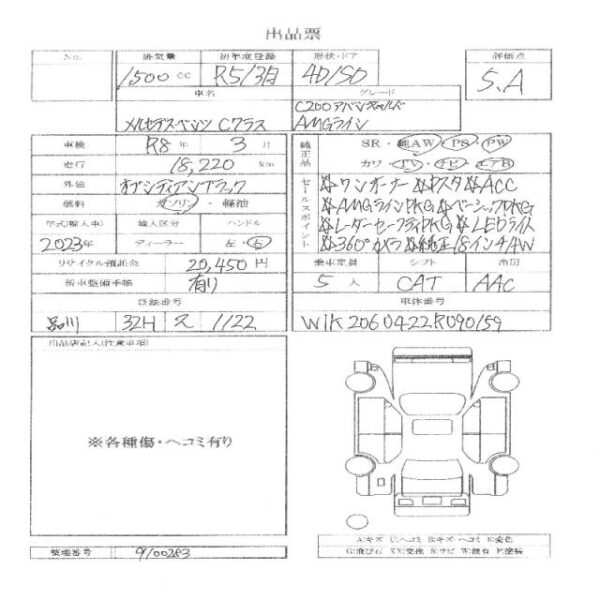 出品票
No. 排気量 初年度登録 形状・ドア 評価点
1500 cc R5/3月 4D/SD 5.A
車名 グレード
メルセデスベンツ Cクラス C200アバンギャルド
AMGライン
車検 R8 年 3 月
走行 18,220 km
外色 オブシディアンブラック
燃料 ガソリン・軽油
年式(輸入車) 輸入区分 ハンドル
2023年 ディーラー 左・右
リサイクル預託金 20,450 円
新車整備手帳 有り
登録番号
品川 32H ス 1122
純正品 SR・純AW・PS・PW
カワ・TV・ナビ・エアB
セールスポイント
※ワンオーナー ※Pスタ ※ACC
※AMGラインPKG ※ベーシックPKG
※レーダーセーフティPKG ※LEDライト
※360°カメラ ※純正18インチAW
乗車定員 シフト 冷房
5 人 CAT AAC
車体番号
W1K2060422R090159
出品店記入(注意事項)
※各種傷・ヘコミ有り
A:キズ U:ヘコミ B:キズ・ヘコミ
G:飛び石 XX:交換 S:サビ W:波有 P:塗装
整理番号 9100283